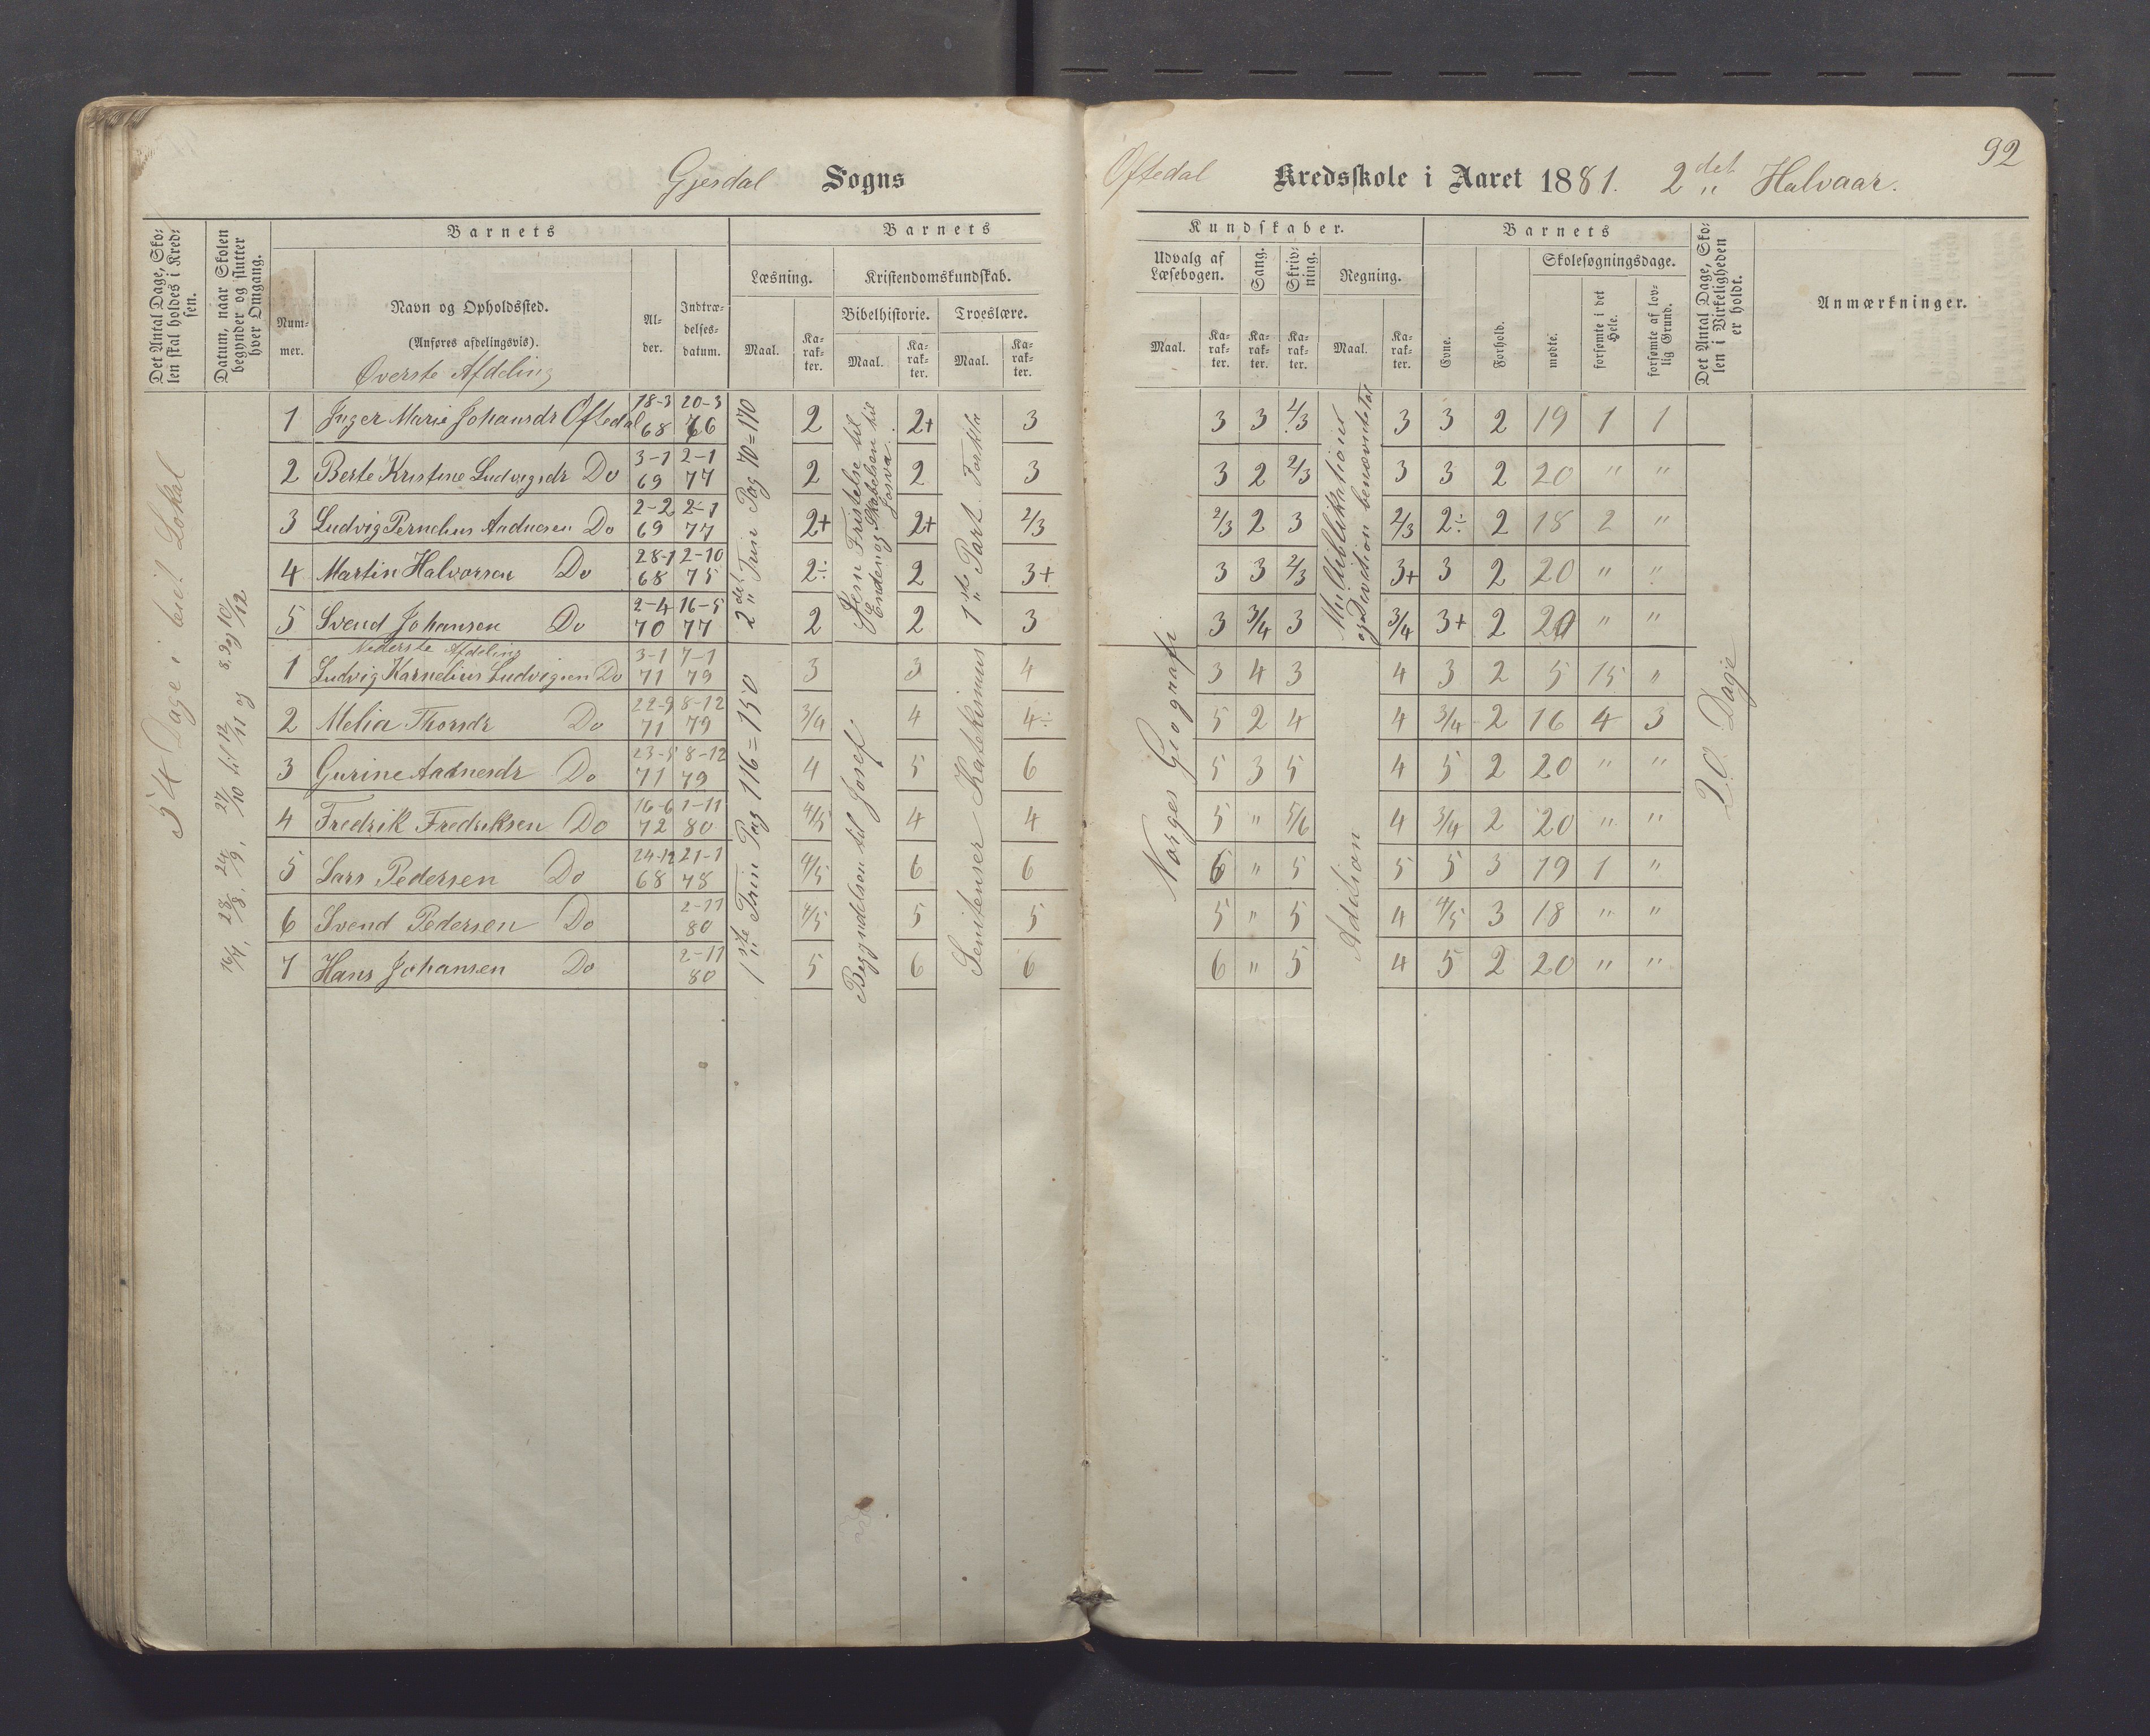 92
Gjesdal Sogns Oftedal Kredsskole i Aaret 1881. 2det Halvaar.
Det Antal Dage, Skolen skal holdes i Kredsen.
Datum, naar Skolen begynder og slutter hver Omgang.
Barnets
Nummer.
Navn og Opholdssted.
(Anføres afdelingsvis).
Øverste Afdeling
Alder.
Indtrædelsesdatum.
Barnets Kundskaber.
Læsning.
Maal.
Karakter.
Kristendomskundskab.
Bibelhistorie.
Maal.
Karakter.
Troeslære.
Maal.
Karakter.
Udvalg af Læsebogen.
Maal.
Karakter.
Sang.
Karakter.
Skrivning.
Karakter.
Regning.
Maal.
Karakter.
Barnets
Evne.
Forhold.
Skolesøgningsdage.
mødte.
forsømte i det Hele.
forsømte af lovlig Grund.
Det Antal Dage, Skolen i Virkeligheden er holdt.
Anmærkninger.
54 Dage i leiet Lokal
27/10 til 12/11 og
2det Trin Pag 70=170
1ste Part Forklar
Multiplikation
og Division benævnte Tal
1 Inger Marie Johansdr Oftedal 18-3 68 20-3 76 2 2+ 3 3 3 2/3 3 3 2 19 1 1
2 Berte Kristine Ludvigsdr Do 3-1 69 2-1 77 2 2 3 3 2 2/3 3 3 2 20 " "
3 Ludvig Pernelius Aadnesen Do 2-2 69 2-1 77 2+ 2+ 2/3 2/3 2 3 2/3 2÷ 2 18 2 "
4 Martin Halvorsen Do 28-1 68 2-10 75 2÷ 2 3+ 3 3 2/3 3+ 3 2 20 " "
5 Svend Johansen Do 2-4 70 16-5 77 2 2 3 3 3/4 3 3/4 3+ 2 20 " "
Nederste Afdeling
1ste Trin Pag 116=150
Begyndelsen til Josef
Sentenser Katekismus
Norges Geografi
Addition
20 Dage
1 Ludvig Karnelius Ludvigsen Do 3-1 71 7-1 79 3 3 4 3 4 3 4 3 2 5 15 "
2 Melia Thorsdr Do 22-9 71 8-12 79 3/4 4 4÷ 5 2 4 4 3/4 2 16 4 3
3 Gurine Aadnesdr Do 23-5 71 8-12 79 4 5 6 5 3 5 4 5 2 20 " "
4 Fredrik Fredriksen Do 16-6 72 1-11 80 4/5 4 4 5 " 5/6 4 3/4 2 20 " "
5 Lars Pedersen Do 24-12 68 21-1 78 4/5 6 6 6 " 5 5 5 3 19 1 "
6 Svend Pedersen Do 2-11 80 4/5 5 5 5 " 5 4 4/5 3 18 " "
7 Hans Johansen Do 2-11 80 5 6 6 6 " 5 4 5 2 20 " "